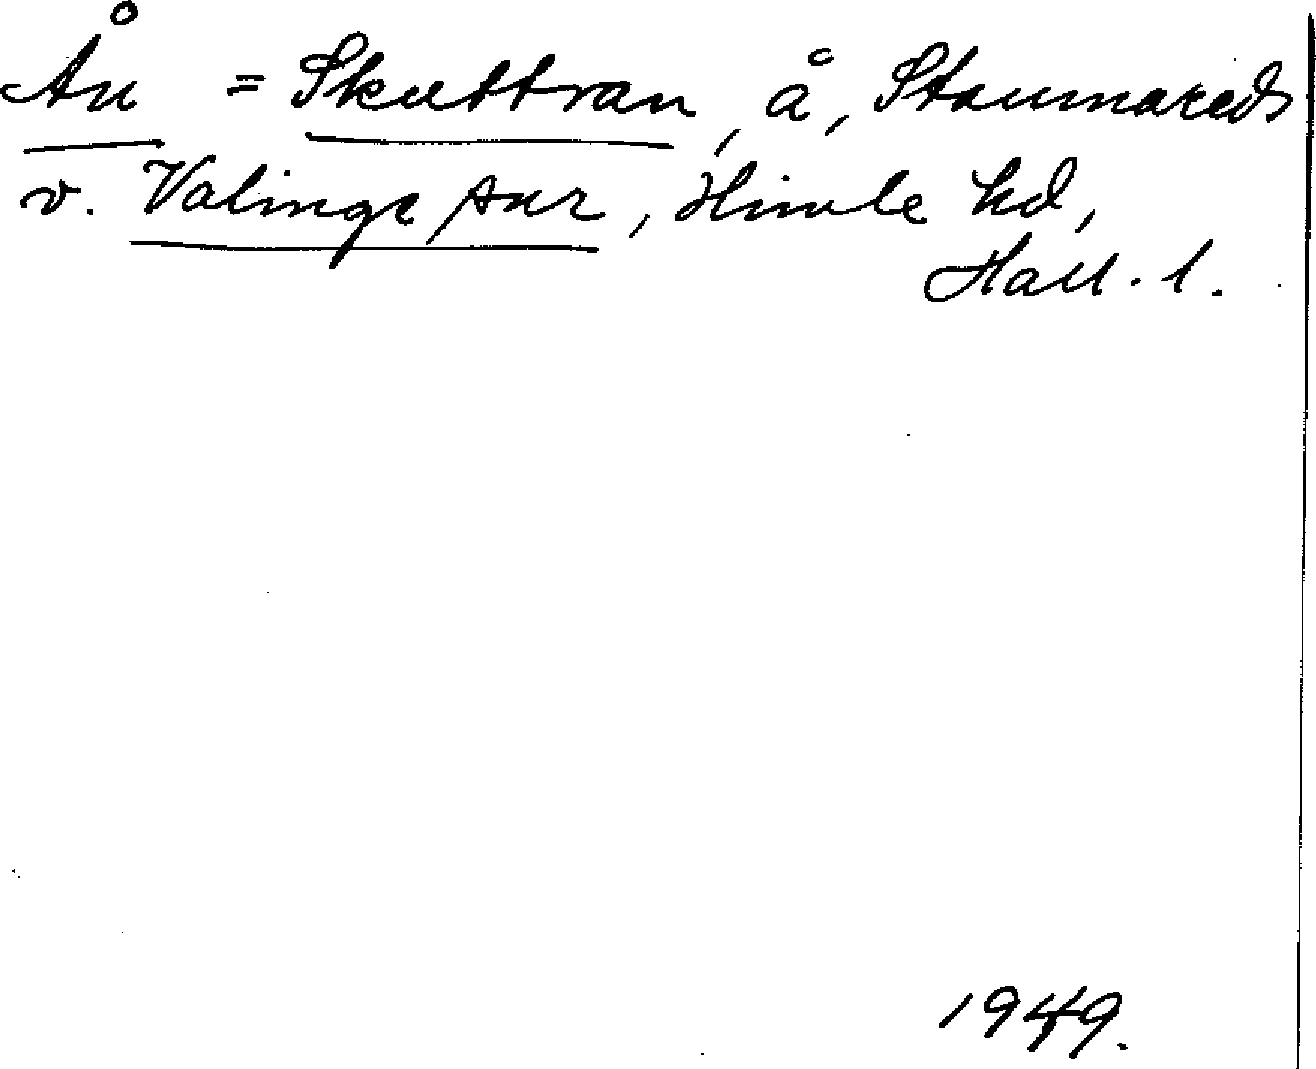 Ån = Skuttran, å, Stamnareds
o. Valinge snr, Himle hd,
Hall. l.
1949.